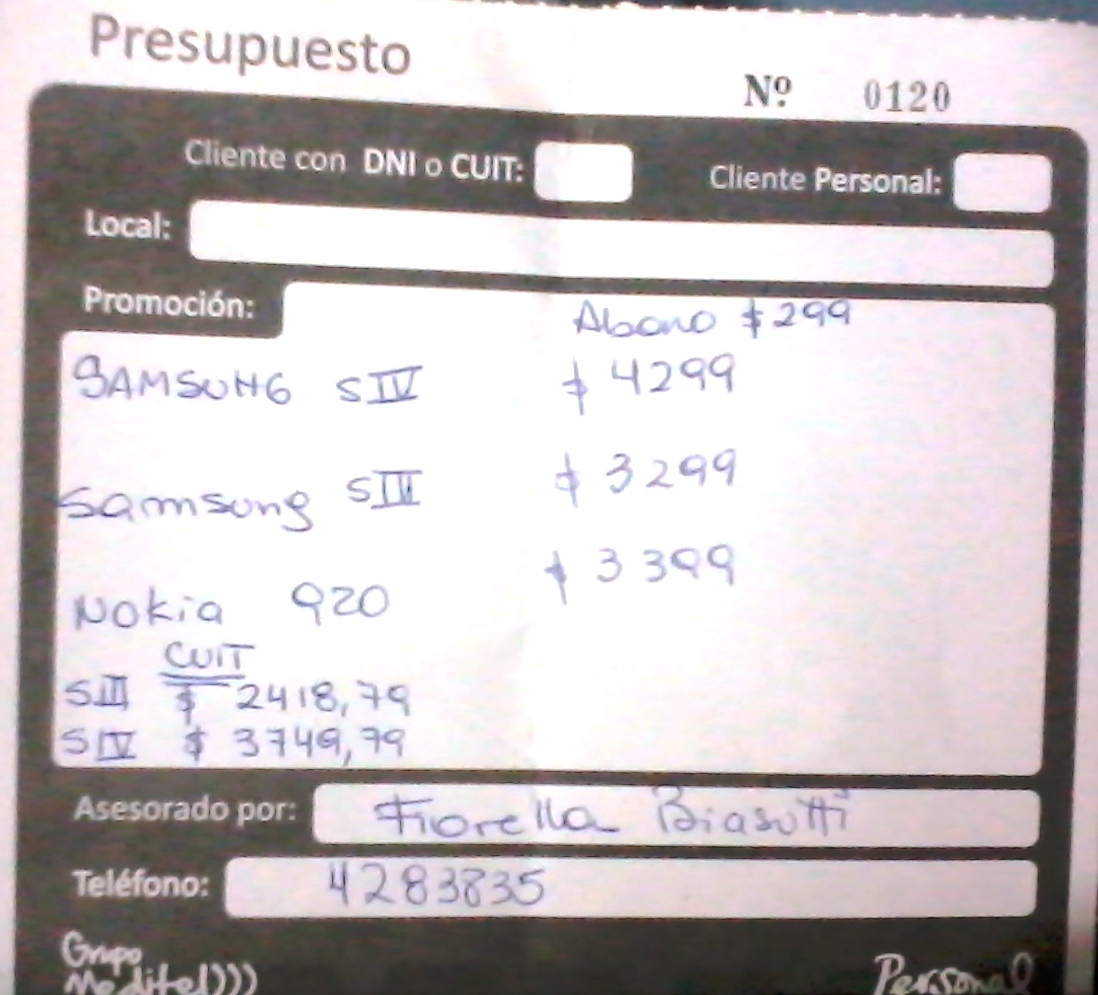 Presupuesto
Nº 0120
Cliente con DNI o CUIT:
Cliente Personal:
Local:
Promoción:
Abono $299
SAMSUNG SIV $4299
Samsung SIII $3299
Nokia 920 $3399
CUIT
SIII $ 2418,79
SIV $ 3749,79
Asesorado por: Fiorella Biasutti
Teléfono: 4283835
Grupo
Meditel)))
Personal